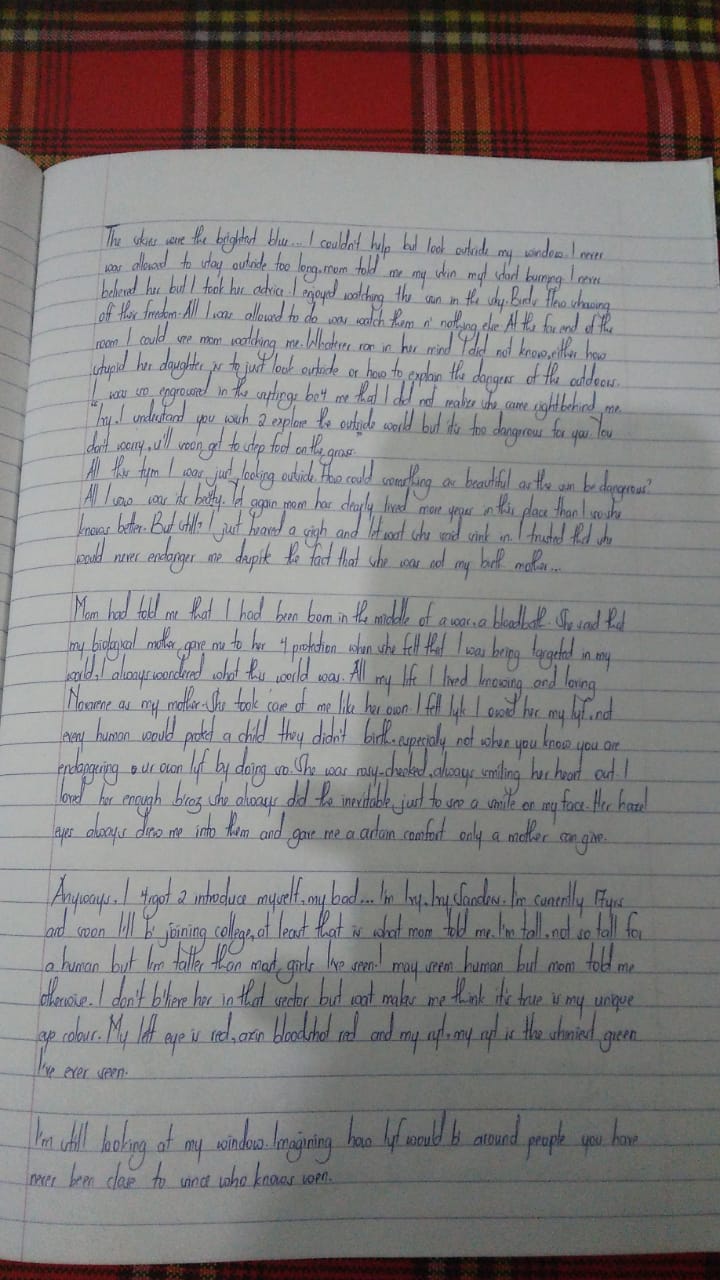 The skies were the brightest blue... I couldn't help but look outside my window. I never
was allowed to stay outside too long, mom told me my skin myt start burning. I never
believed her but I took her advice. I enjoyed watching the sun in the sky. Birds flew showing
off their freedom. All I was allowed to do was watch them n' nothing else. At the far end of the
room I could see mom watching me. Whatever ran in her mind I did not know, either how
stupid her daughter is to just look outside or how to explain the dangers of the outdoors.
I was so engrossed in the outside be4 me that I did not realize she came right behind me.
"Ivy, I understand you wish 2 explore the outside world but it's too dangerous for you. You
don't worry, u'll soon get to step foot on the grass."
All this tym I was just looking outside. How could something as beautiful as the sun be dangerous?
All I saw was its beauty. Yet again mom has clearly lived more years in this place than I so she
knows better. But still? I just heaved a sigh and let wat she said sink in. I trusted that she
would never endanger me despite the fact that she was not my birth mother...
Mom had told me that I had been born in the middle of a war, a bloodbath. She said that
my biological mother gave me to her 4 protection when she felt that I was being targeted in my
world. I always wondered what this world was. All my life I lived knowing and loving
as my mother. She took care of me like her own. I felt lyk I owed her my lyf, not
every human would protect a child they didn't birth, especially not when you know you are
endangering ur own lyf by doing so. She was rosy-cheeked, always smiling her heart out. I
loved her enough b'coz she always did the inevitable, just to see a smile on my face. Her hazel
eyes always drew me into them and gave me a certain comfort only a mother can give.
Anyways, I 4got 2 introduce myself, my bad... I'm Ivy, Ivy Sanders. I'm currently 17yrs
and soon I'll b' joining college, at least that is what mom told me. I'm tall, not so tall for
a human but I'm taller than most girls I've seen. I may seem human but mom told me
otherwise. I don't b'lieve her in that sector but wat makes me think it's true is my unique
eye colour. My left eye is red, as in bloodshot red and my ryt, my ryt is the shiniest green
I've ever seen.
I'm still looking at my window. Imagining how lyf would b' around people you have
never been close to since who knows wen.